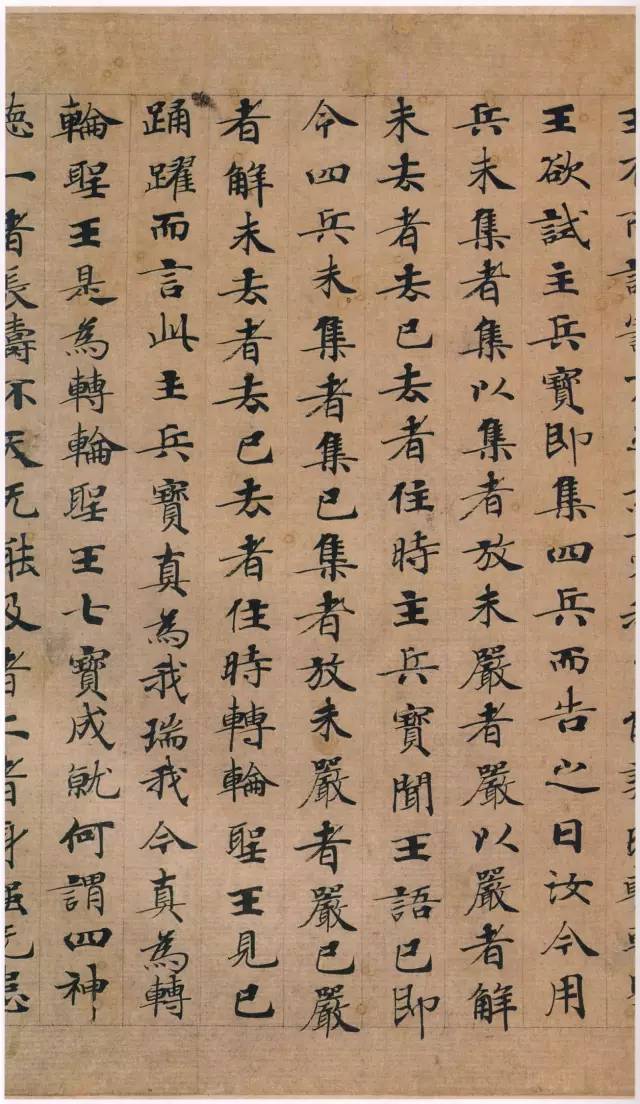 王欲試主兵寶即集四兵而告之曰汝今用
兵未集者集以集者放未嚴者嚴以嚴者解
未去者去已去者住時主兵寶聞王語已即
令四兵未集者集已集者放未嚴者嚴已嚴
者解未去者去已去者住時轉輪聖王見已
踊躍而言此主兵寶真為我瑞我今真為轉
輪聖王是為轉輪聖王七寶成就何謂四神
德一者長壽不夭无能及者二者身強无患